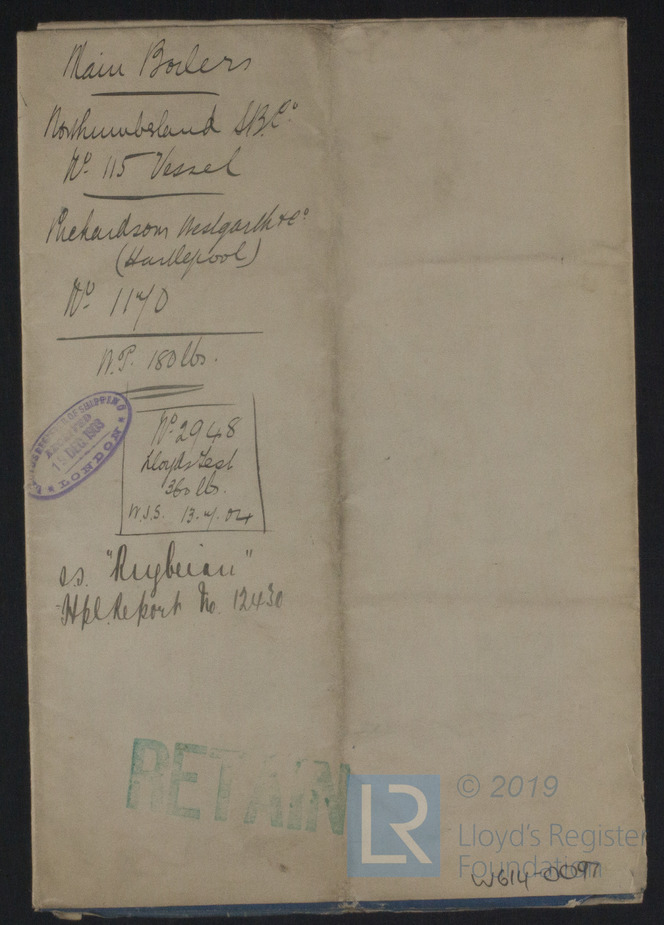 Main Boilers
Northumberland S.B.Cº
Nº 115 Vessel
Richardsons Westgarth & Cº
(Hartlepool)
Nº
W.P. 180 lbs.
RECEIVED
15 DEC. 1903
LONDON
Nº 2948
Lloyds Test
360 lb.
W.J.S.
s.s.
Hpl. Report No. 12430
RETAIN
LR
© 2019
Lloyd's Register
Foundation
W614-0097